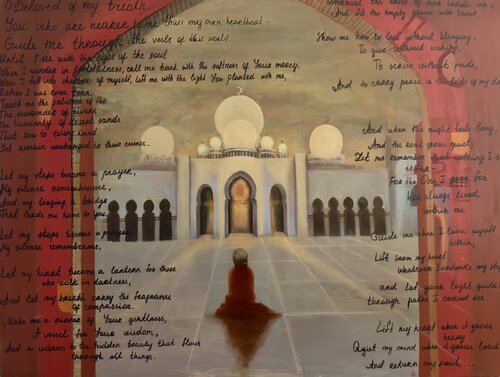 O Beloved of my breath,
You who are nearer to me than my own heartbeat
Guide me through the veils of this world
Until I see with the eyes of the soul
When I wander in forgetfulness, call me back with the softness of Your mercy.
When I fall into shadows of myself, lift me with the light You planted with me,
Before I was even born.
Teach me the patience of the
The surrender of rivers
The humility of desert sands
That bow to every wind
Yet remain unchanged in their essence.
Let my steps become a prayer,
My silence remembrance,
And my longing a bridge
That leads me home to you.
Let my steps become a prayer
My silence remembrance,
Let my heart become a lantern for those
who walk in darkness,
And let my breath carry the fragrance
of compassion.
Make me a mirror of Your gentleness,
A vessel for Your wisdom,
And a witness to the hidden beauty that flows
through all things.
the knots of inside me,
And fill the empty spaces with
Show me how to love without
To give without
To serve without pride,
And to carry peace in the folds of my
And when the night feels long
And the road grows quiet,
Let me remember that nothing I
is
For the One I yearn for
has always lived
within me
Guide me when I lose myself
within,
Lift from my heart
whatever burdens my
And let your light guide
through paths I cannot see.
Lift my heart when it grows
heavy
Quiet my mind when it grows loud
And return my soul...